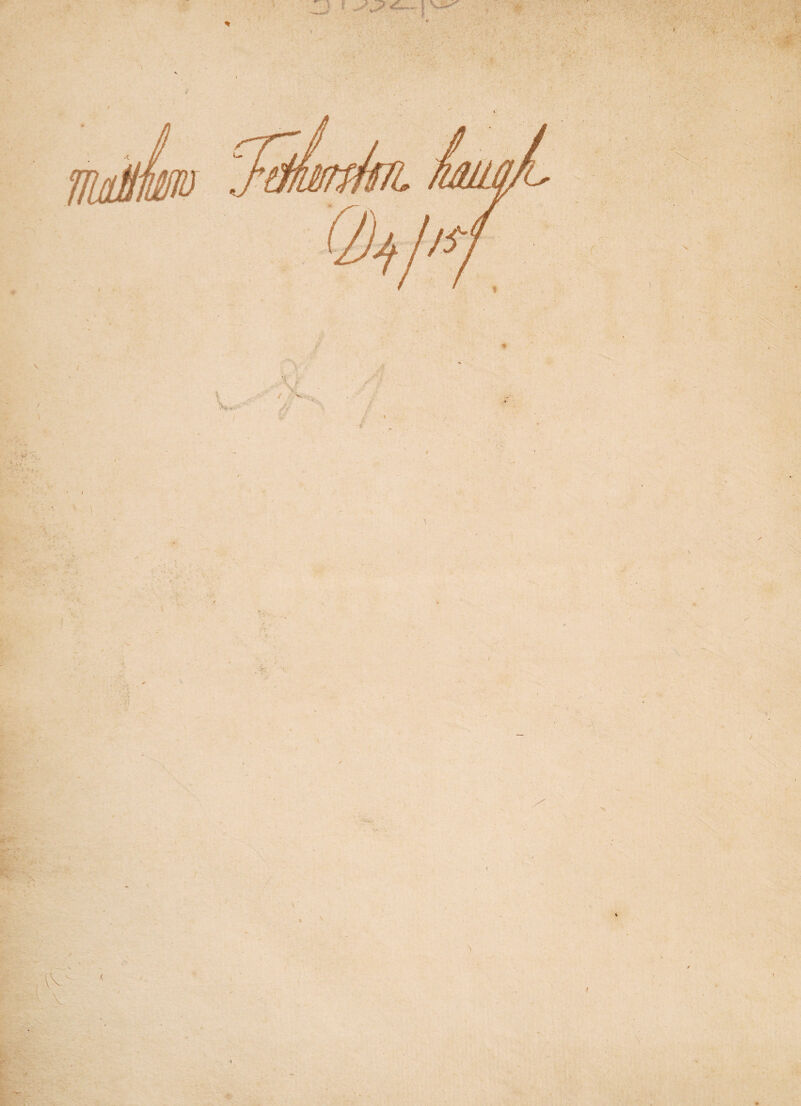 matthew Fetherston haugh
D4/15/